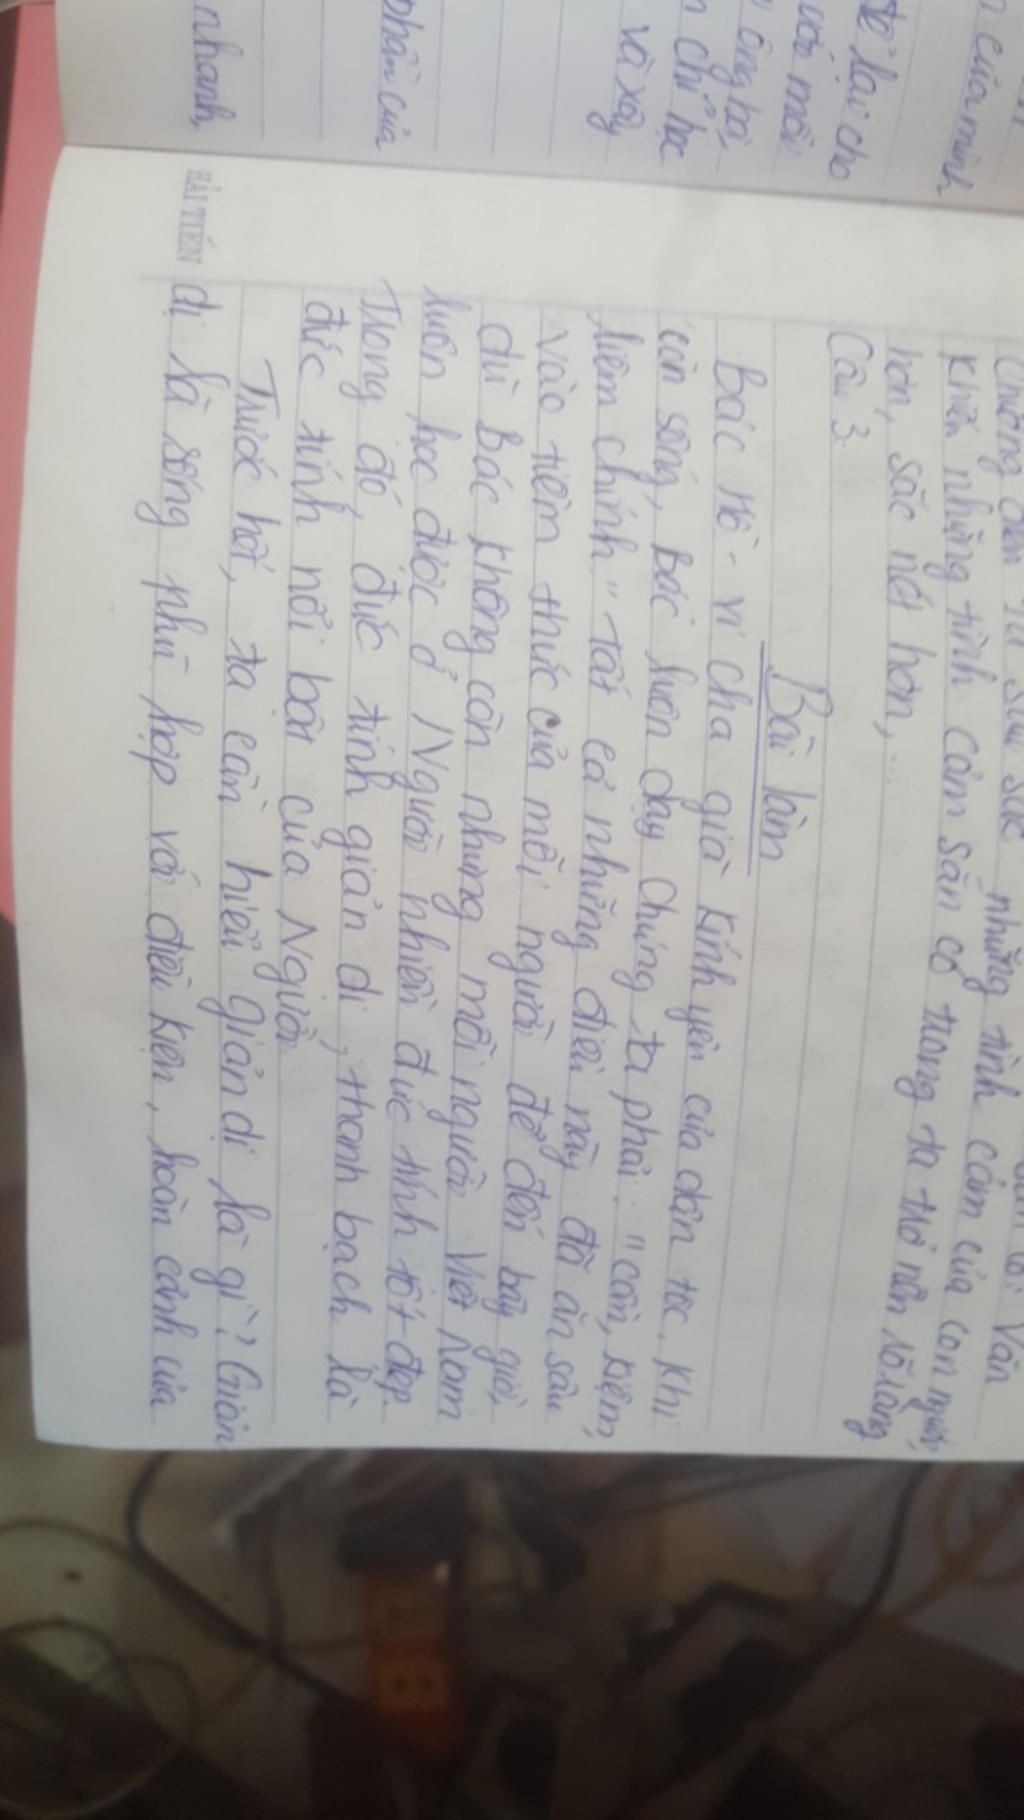 n của mình
để lại cho
với mỗi
ông bà,
n chỉ học
và xây
phần của
nhanh,
những tình cảm của con người,
khiến những tình cảm sẵn có trong ta trở nên rõ ràng
hơn, sắc nét hơn,...
Câu 3.
Bài làm
Bác Hồ - vị cha già kính yêu của dân tộc. Khi
còn sống, Bác luôn dạy chúng ta phải: "Cần, kiệm,
liêm chính". Tất cả những điều này đã ăn sâu
vào tiềm thức của mỗi người để đến bây giờ,
dù Bác không còn nhưng mỗi người Việt Nam
luôn học được ở Người nhiều đức tính tốt đẹp.
Trong đó, đức tính giản dị, thanh bạch là
đức tính nổi bật của Người.
Trước hết, ta cần hiểu giản dị là gì? Giản
dị là sống phù hợp với điều kiện, hoàn cảnh của
HẢI TIẾN